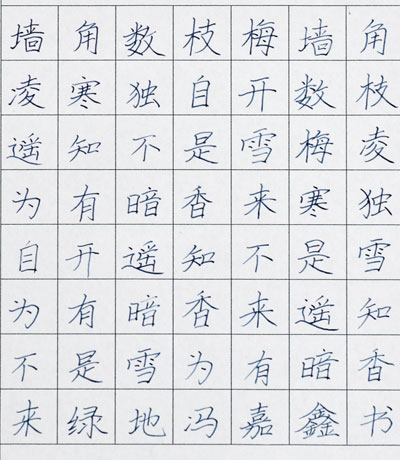 墙角数枝梅墙角
凌寒独自开数枝
遥知不是雪梅凌
为有暗香来寒独
自开遥知不是雪
为有暗香来遥知
不是雪为有暗香
来绿地冯嘉鑫书